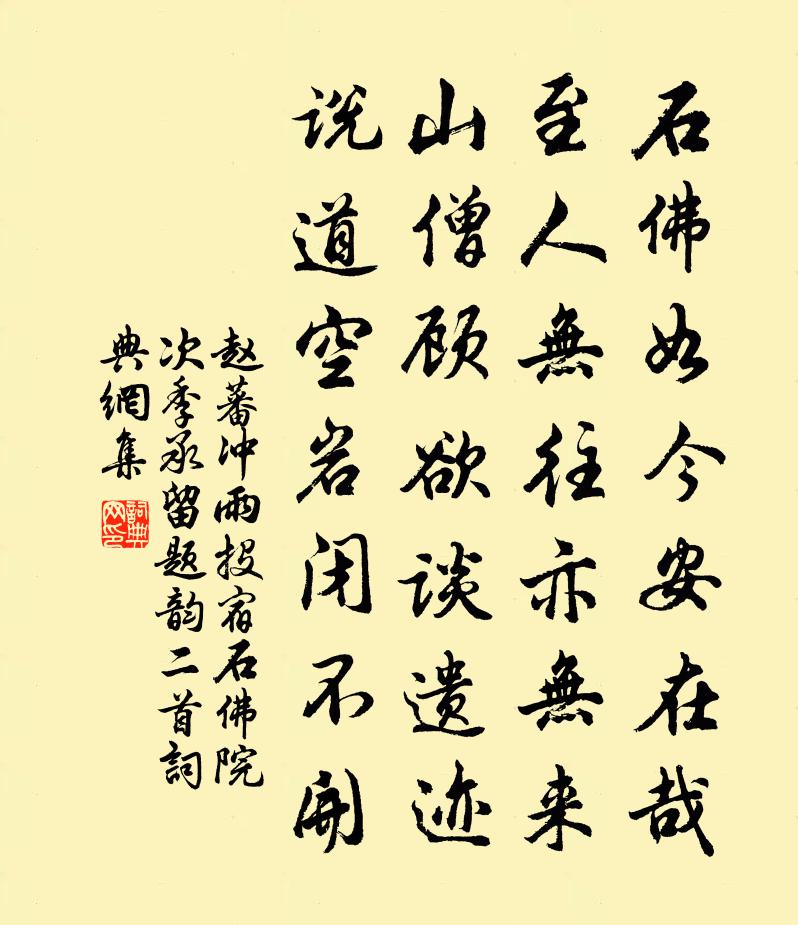 石佛如今安在哉
至人無往亦無来
山僧顾欲谈遗迹
说道空岩闭不開
赵蕃冲雨投宿石佛院
次季承留题韵二首詞
典網集
詞典
网印